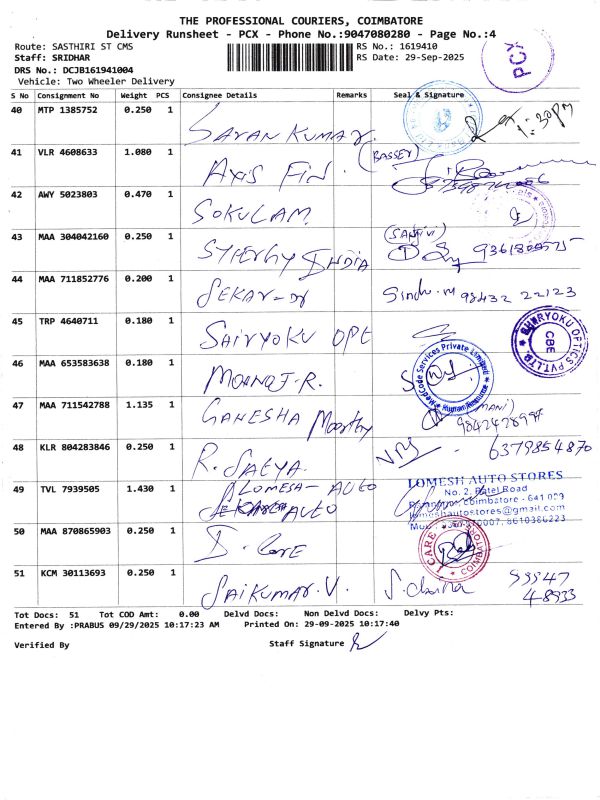 THE PROFESSIONAL COURIERS, COIMBATORE
Delivery Runsheet - PCX - Phone No.:9047080280 - Page No.:4
Route: SASTHIRI ST CMS
RS No.: 1619410
Staff: SRIDHAR
RS Date: 29-Sep-2025
DRS No.: DCJB161941004
Vehicle: Two Wheeler Delivery
PCX
S No Consignment No Weight PCS Consignee Details Remarks Seal & Signature
40 MTP 1385752 0.250 1 SARAN KUMAR. 1:30PM
41 VLR 4608633 1.080 1 AXIS FIN. (BASSER)
42 AWY 5023803 0.470 1 SOKULAM
43 MAA 304042160 0.250 1 SYNERGY INDIA (SANJIVI)
44 MAA 711852776 0.200 1 SEKAR-M Sindhu.m 98432 22123
45 TRP 4640711 0.180 1 SAIRYOKU OPT
SAIRYOKU OPTICS PVT LTD. CBE
46 MAA 653583638 0.180 1 MOHNAJ.R.
MedCode Services Private Limited Human Resource
47 MAA 711542788 1.135 1 GANESHA Moorthy (MANI)
48 KLR 804283846 0.250 1 R. SATYA. 6379854870
49 TVL 7939505 1.430 1 LOMESH-AUTO
AUTO
LOMESH AUTO STORES
No. 2, Patel Road
Coimbatore - 641 009
lomeshautostores@gmail.com
8610386223
50 MAA 870865903 0.250 1 I. CARE
I CARE COIMBATORE
51 KCM 30113693 0.250 1 SAIKUMAR.V. 99947
48933
Tot Docs: 51 Tot COD Amt: 0.00 Delvd Docs: Non Delvd Docs: Delvy Pts:
Entered By :PRABUS 09/29/2025 10:17:23 AM Printed On: 29-09-2025 10:17:40
Verified By Staff Signature